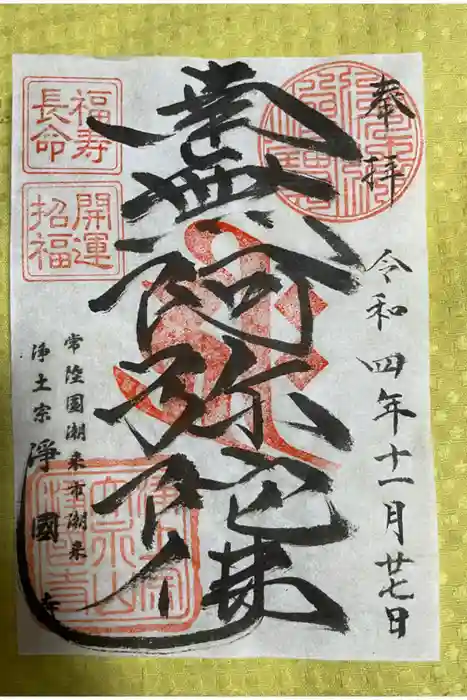 奉拝
令和四年十一月廿七日
南無阿弥陀仏
福寿
長命
開運
招福
常陸國潮来市潮来
浄土宗 淨國寺